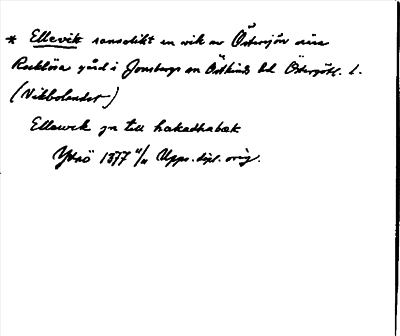 * Ellevik sannolikt en vik av Östersjön nära
Recklösa gård i Jonsbergs sn Östkinds hd Östergötl. l.
(Vikbolandet)
Ellewik jn till hakadhabæk
Ytrö 1377 4/11 Upps. dipl. orig.